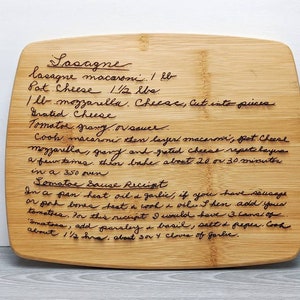 Lasagne
lasagne macaroni 1 lb
Pot Cheese 1 1/2 lbs
1 lb mozzarella Cheese, Cut into pieces
Grated Cheese
Tomatoe gravy or sauce
Cook macaroni then layer macaroni, pot Cheese
mozzarella, gravy and grated cheese repeat layers
a few times then bake about 20 or 30 minutes
in a 350 oven
Tomatoe Sauce Receipt
In a pan heat oil & garlic, if you have sausage
or pork bones heat & cook & oil. Then add your
tomatoes. For this receipt I would have 3 cans of
tomatoes, add parsley & basil, salt & pepper. Cook
about 1 1/2 hrs. about 3 or 4 cloves of garlic